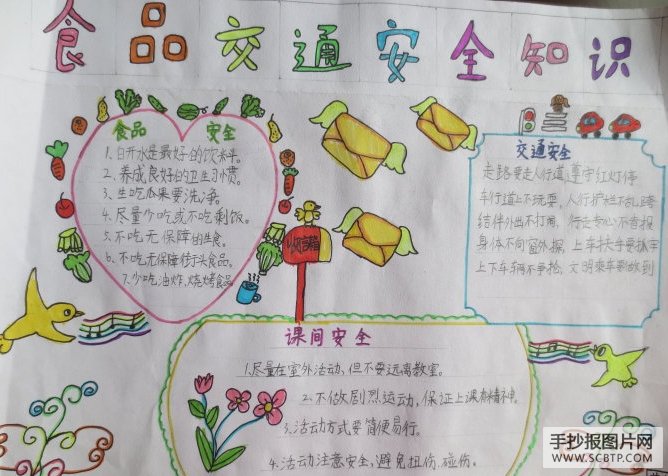 食品交通安全知识
食品 安全
1、白开水是最好的饮料。
2、养成良好的卫生习惯。
3、生吃瓜果要洗净。
4、尽量少吃或不吃剩饭。
5、不吃无保障的生食。
6、不吃无保障街头食品。
7、少吃油炸、烧烤食品
交通安全
走路要走人行道,遵守红灯停
车行道上不玩耍,人行护栏不乱跨
结伴外出不打闹,行走专心不看报
身体不向窗外探,上车扶击要抓牢
上下车辆不争抢,文明乘车要做到
课间安全
1、尽量在室外活动,但不要远离教室。
2、不做剧烈运动,保证上课有精神。
3、活动方式要简便易行。
4、活动注意安全,避免扭伤、碰伤。
手抄报图片网
WWW.SCBTP.COM